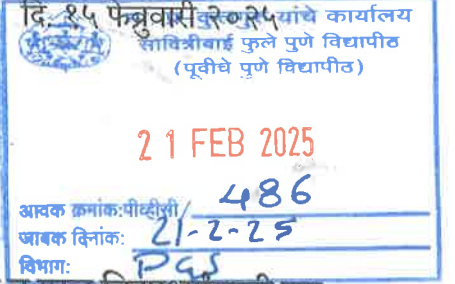 दि. १५ फेब्रुवारी २०२५ यांचे कार्यालय
सावित्रीबाई फुले पुणे विद्यापीठ
(पूर्वीचे पुणे विद्यापीठ)
21 FEB 2025
आवक क्रमांक:पीव्हीसी/ 486
जावक दिनांक: 21-2-25
विभाग: PGS